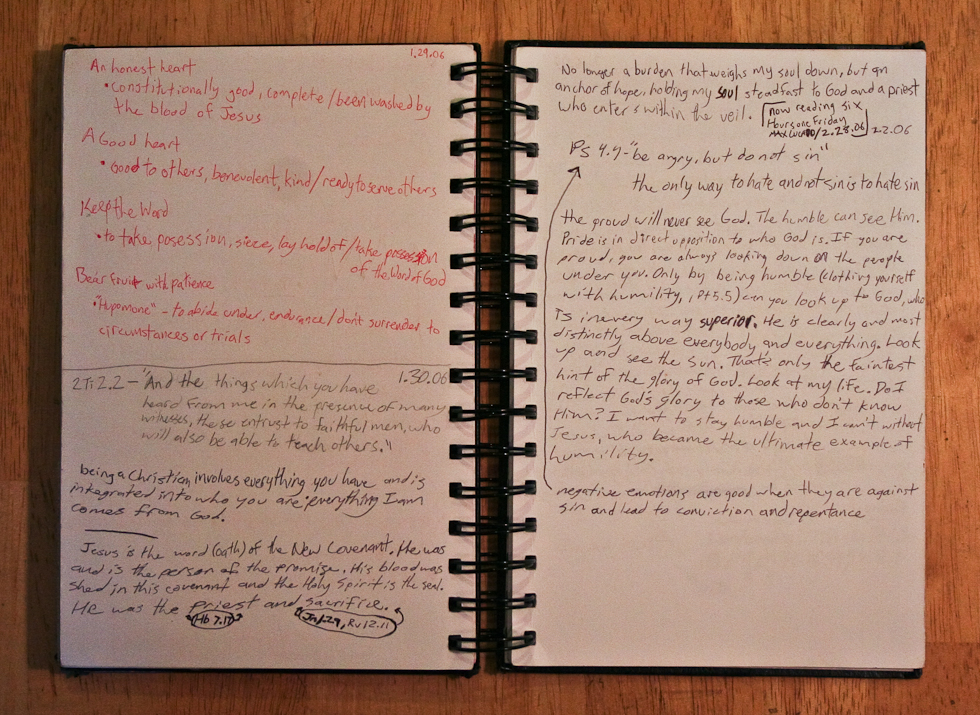 1.29.06
An honest heart
•constitutionally good, complete/been washed by
the blood of Jesus
A Good heart
• Good to others, benevolent, kind/ready to serve others
Keep the Word
•to take posession, sieze, lay hold of/take possession
of the Word of God
Bear fruit with patience
•"Hupomone" - to abide under, endurance/dont surrender to
circumstances or trials
2Ti 2.2 - "And the things which you have
1.30.06
heard from me in the presence of many
witnesses, these entrust to faithful men, who
will also be able to teach others."
being a Christian involves everything you have and is
integrated into who you are. everything I am
comes from God.
Jesus is the word (oath) of the New Covenant. He was
and is the person of the promise. His blood was
shed in this covenant and the Holy Spirit is the seal.
HE was the priest and sacrifice.
Hb 7.17
Jn 1.29, Rv 12.11
No longer a burden that weighs my soul down, but an
anchor of hope, holding my soul steadfast to God and a priest
who enters within the veil.
now reading six
Hours one Friday
MAX LUCADO/2.23.06
2.2.06
PS 4.4 - "be angry, but do not sin"
the only way to hate and not sin is to hate sin
the proud will never see God. The humble can see Him.
Pride is in direct opposition to who God is. If you are
proud, you are always looking down on the people
under you. Only by being humble (clothing yourself
with humility, 1Pt 5.5) can you look up to God, who
is in every way superior. He is clearly and most
distinctly above everybody and everything. Look
up and see the sun. That's only the faintest
hint of the glory of God. Look at my life. Do I
reflect God's glory to those who don't know
Him? I want to stay humble and I can't without
Jesus, who became the ultimate example of
humility.
negative emotions are good when they are against
sin and lead to conviction and repentance